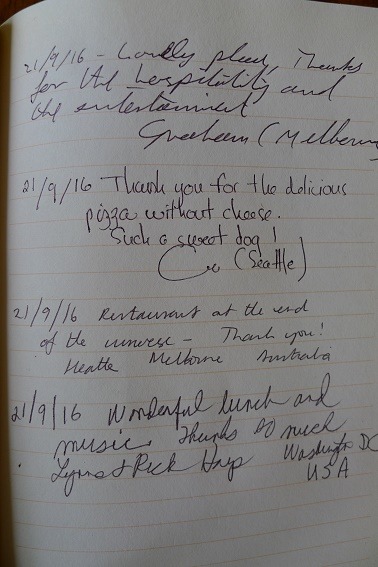 21/9/16 - Lovely place, Thanks
for the hospitality and
the entertainment
Graham (Melbourne
21/9/16 Thank you for the delicious
pizza without cheese.
Such a sweet dog!
(Seattle)
21/9/16 Restaurant at the end
of the universe - Thank you!
Melbourne Australia
21/9/16 Wonderful lunch and
music. Thanks so much
Lynne & Rick Hays Washington DC
USA